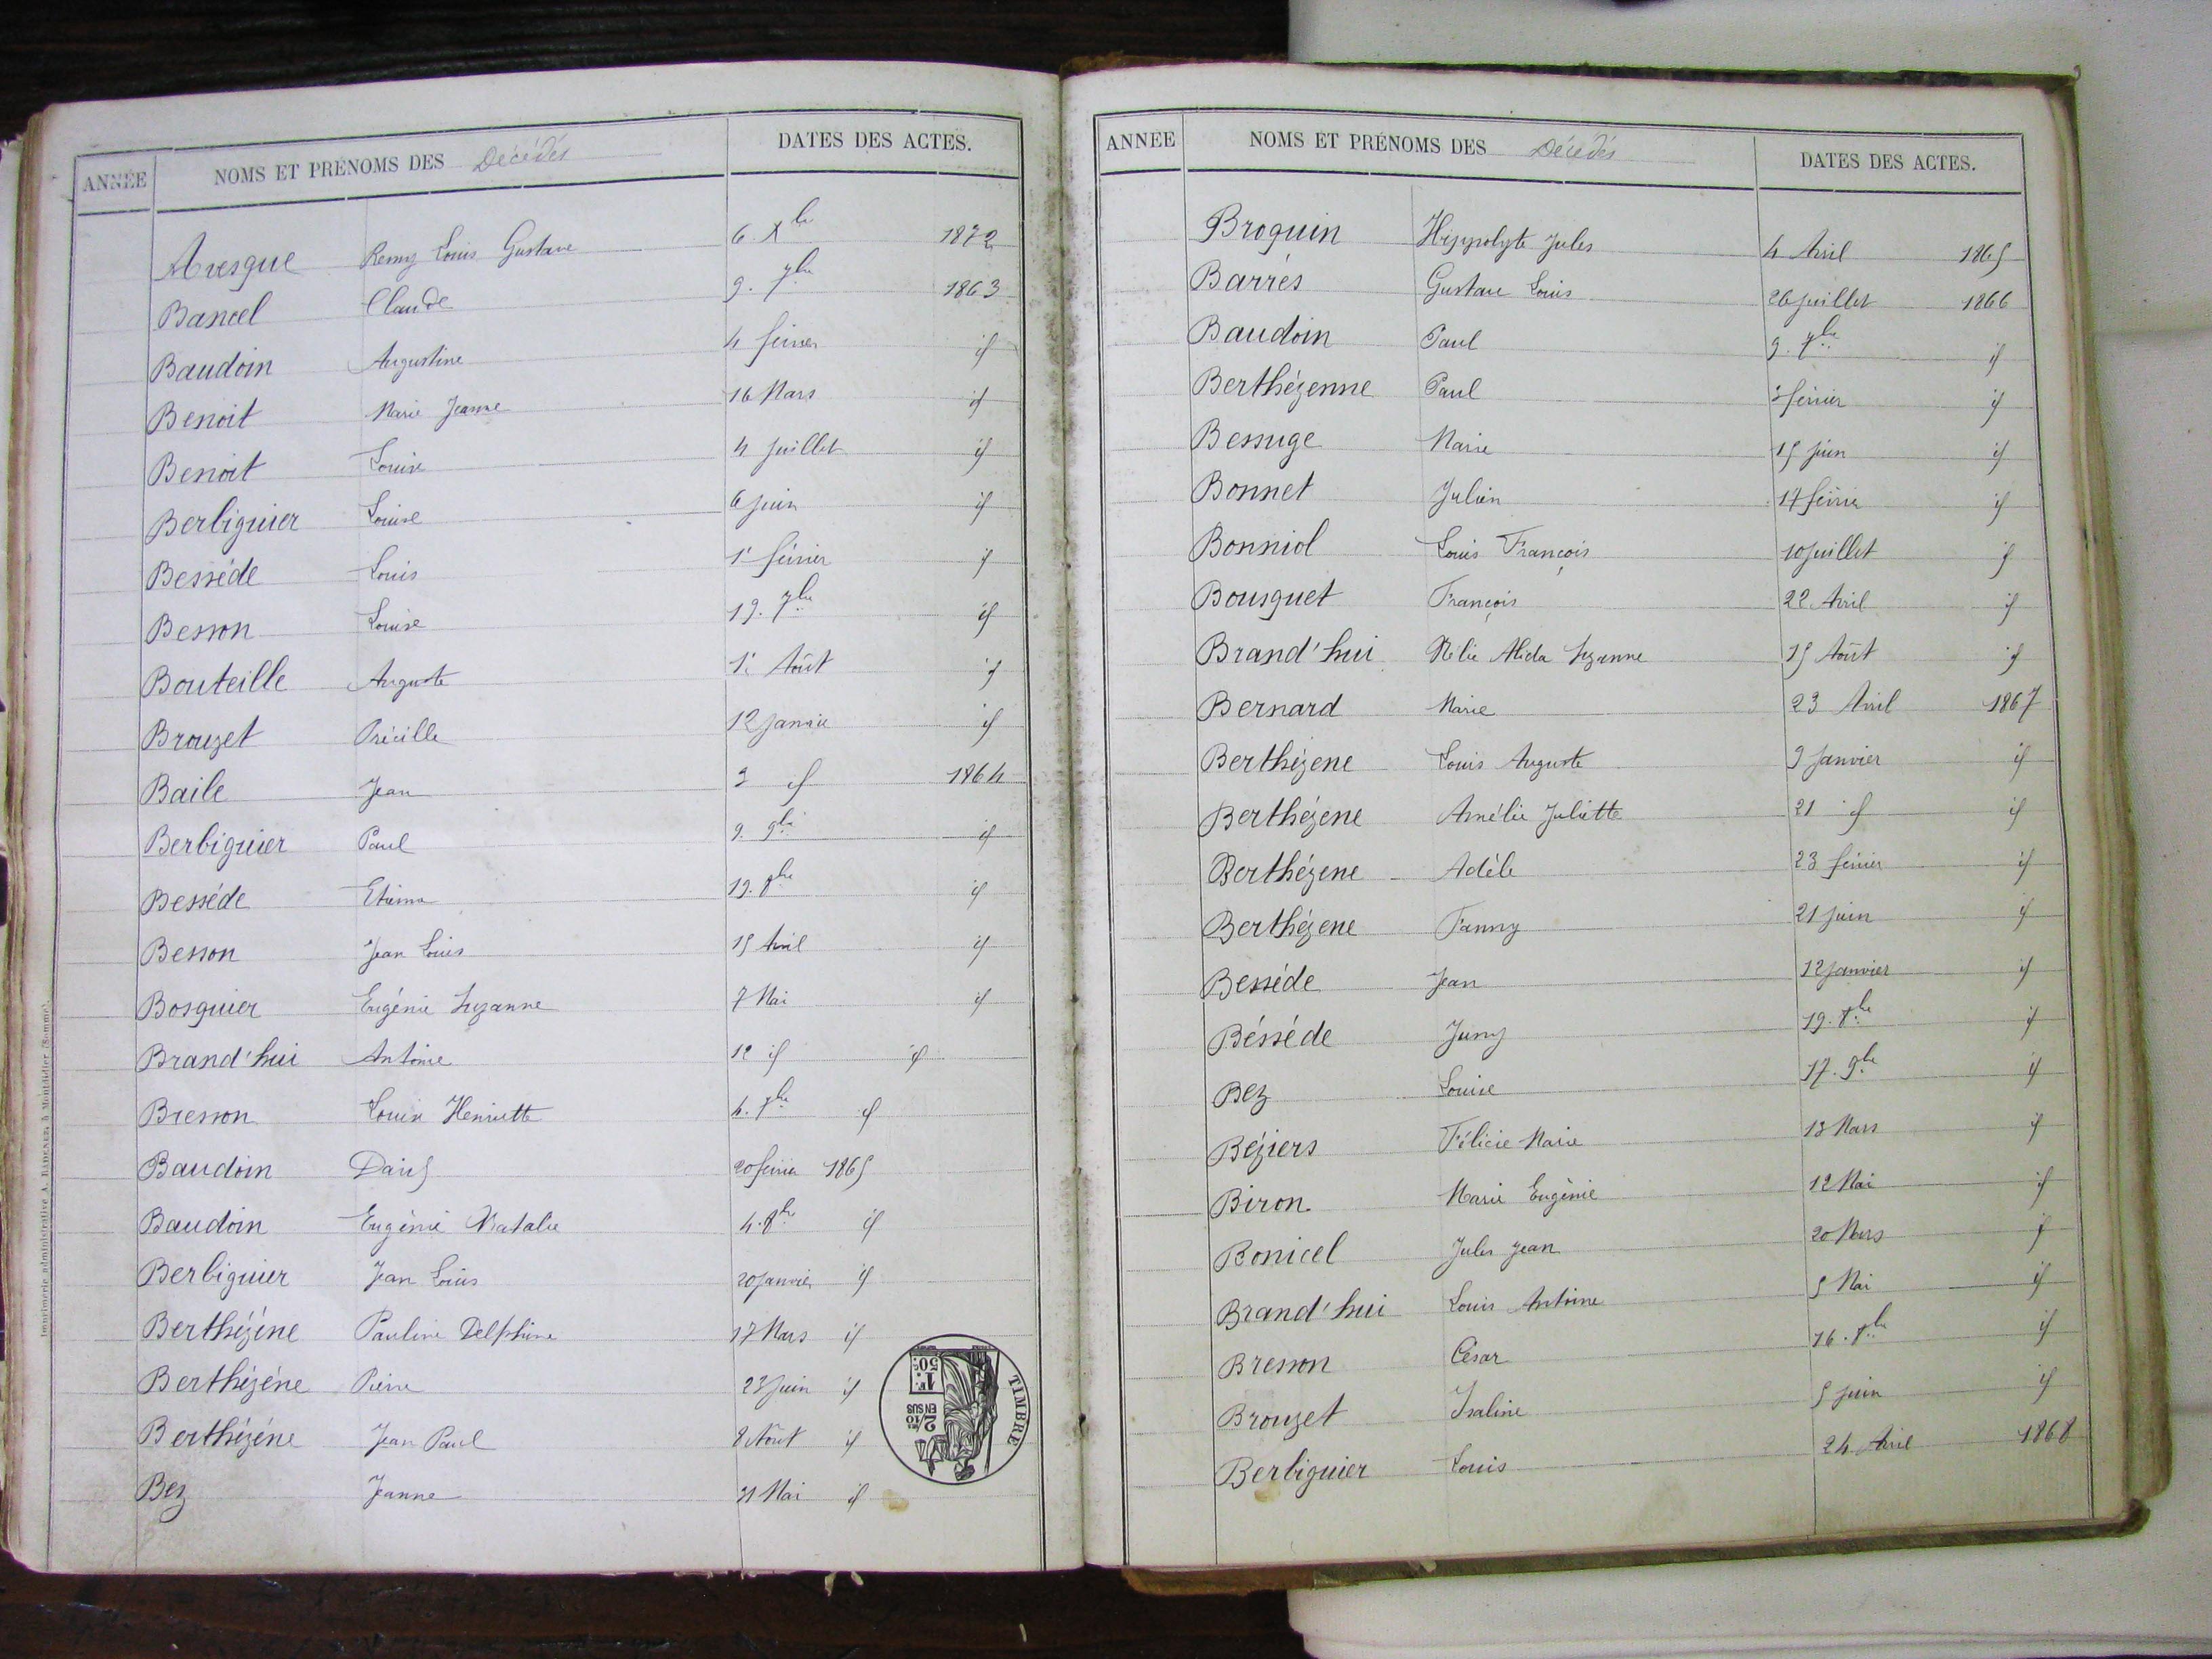 ANNÉE NOMS ET PRÉNOMS DES Décédés DATES DES ACTES.
Avesque Remy Louis Gustave 6. Xbre 1872
Bancel Claude 9. 7bre 1863
Baudoin Augustine 4 février id
Benoit Marie Jeanne 16 Mars id
Benoit Louise 4 juillet id
Berbiguier Louise 6 juin id
Besséde Louis 1er février id
Besson Louise 19. 7bre id
Bouteille Auguste 1er Août id
Brouzet Précille 12 janvier id
Baile Jean 3 id 1864
Berbiguier Paul 9. 9bre id
Besséde Etienne 19. 8bre id
Besson Jean Louis 15 Avril id
Bosquier Eugénie Suzanne 7 Mai id
Brand'hui Antoine 12 id id
Bresson Louise Henriette 4. 7bre id
Baudoin David 20 février 1865
Baudoin Eugénie Natalie 4. 8bre id
Berbiguier Jean Louis 20 janvier id
Berthézéne Pauline Delphine 17 Mars id
Berthézéne Pierre 23 Juin id
Berthézéne Jean Paul 8 Août id
Bez Jeanne 21 Mai id
TIMBRE
1F. 50c.
2/10 EN SUS
Imprimerie administrative A. RADENEZ, à Montdidier (Somme).
ANNÉE NOMS ET PRÉNOMS DES Décédés DATES DES ACTES.
Broquin Hippolyte Jules 4 Avril 1865
Barrés Gustave Louis 26 juillet 1866
Baudoin Paul 9. 7bre id
Berthézenne Paul février id
Bessuge Marie 15 juin id
Bonnet Julien 14 février id
Bonniol Louis François 10 juillet id
Bousquet François 22 Avril id
Brand'hui Nélie Alida Suzanne 15 Août id
Bernard Marie 23 Avril 1867
Berthézene Louis Auguste 9 Janvier id
Berthézene Amélie Juliette 21 id id
Berthézene Adèle 23 février id
Berthézene Fanny 21 juin id
Besséde Jean 12 janvier id
Bésséde Jenny 19. 8bre id
Bez Louise 17. 9bre id
Béziers Félicie Marie 13 Mars id
Biron Marie Eugénie 12 Mai id
Bonicel Jules Jean 20 Mars id
Brand'hui Louis Antoine 5 Mai id
Bresson César 16. 8bre id
Brouzet Isaline 5 juin id
Berbiguier Louis 24 Avril 1868